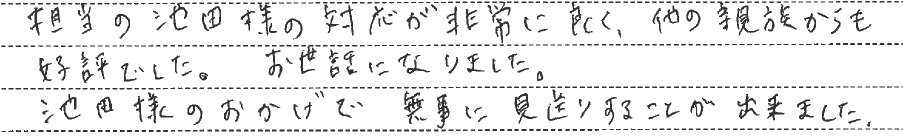 担当の池田様の対応が非常に良く、他の親族からも
好評でした。 お世話になりました。
池田様のおかげで 無事に見送りすることが出来ました。